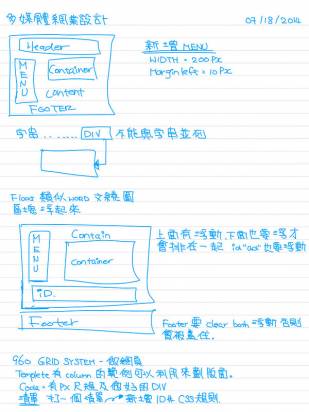 多媒體網頁設計
07/18/2014
Header
MENU
Container
Content
FOOTER
新增 MENU
WIDTH = 200 Px
Margin left = 10 Px
字串........ DIV 不能與字串並列
Float 類似 WORD 文繞圖
區塊浮起來
Contain
MENU
Container
iD.
Footer
上面有浮動,下面也要浮才
會排在一起 id"aa"也要浮動
Footer 要 clear both 浮動 否則
會被蓋住.
960 GRID SYSTEM - 個網頁
Template 有 column 的範例可以利用來劃版面.
Code 有 Px 尺規及個好的 DIV
新增 ID 在 CSS 規則.